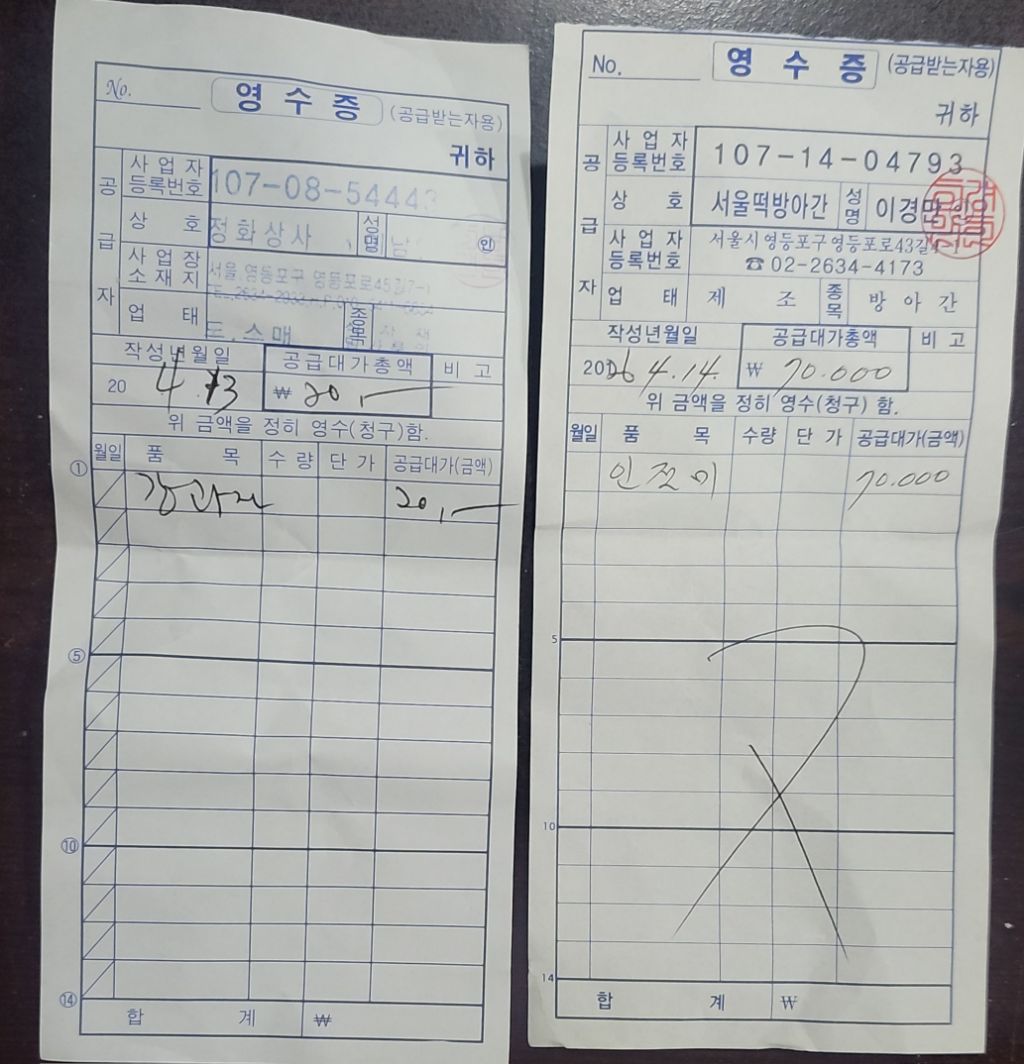 No.
영수증 (공급받는자용)
귀하
공급자
사업자등록번호 107-08-54443
상호 정화상사 성명 남 인
사업장소재지 서울.영등포구 영등포로45길7-1
업태 도.소매 종목
작성년월일 공급대가총액 비고
20 4.13 ₩ 20,—
위 금액을 정히 영수(청구)함.
월일 품목 수량 단가 공급대가(금액)
① 20,—
⑤
⑩
⑭
합계 ₩
No.
영수증 (공급받는자용)
귀하
공급자
사업자등록번호 107-14-04793
상호 서울떡방아간 성명 이경만
사업자등록번호 서울시 영등포구 영등포로43길
☎ 02-2634-4173
업태 제조 종목 방아간
작성년월일 공급대가총액 비고
2026 4.14. ₩ 70.000
위 금액을 정히 영수(청구)함.
월일 품목 수량 단가 공급대가(금액)
인절미 70.000
5
10
14
합계 ₩